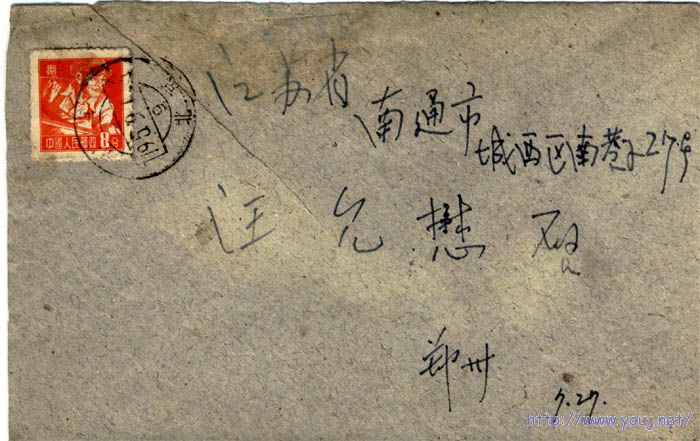 捌
中國人民郵政 8分
北京
江苏省
南通市
城西区南巷子27号
汪允懋 启
郑州
7.27.
http://www.youj.net/